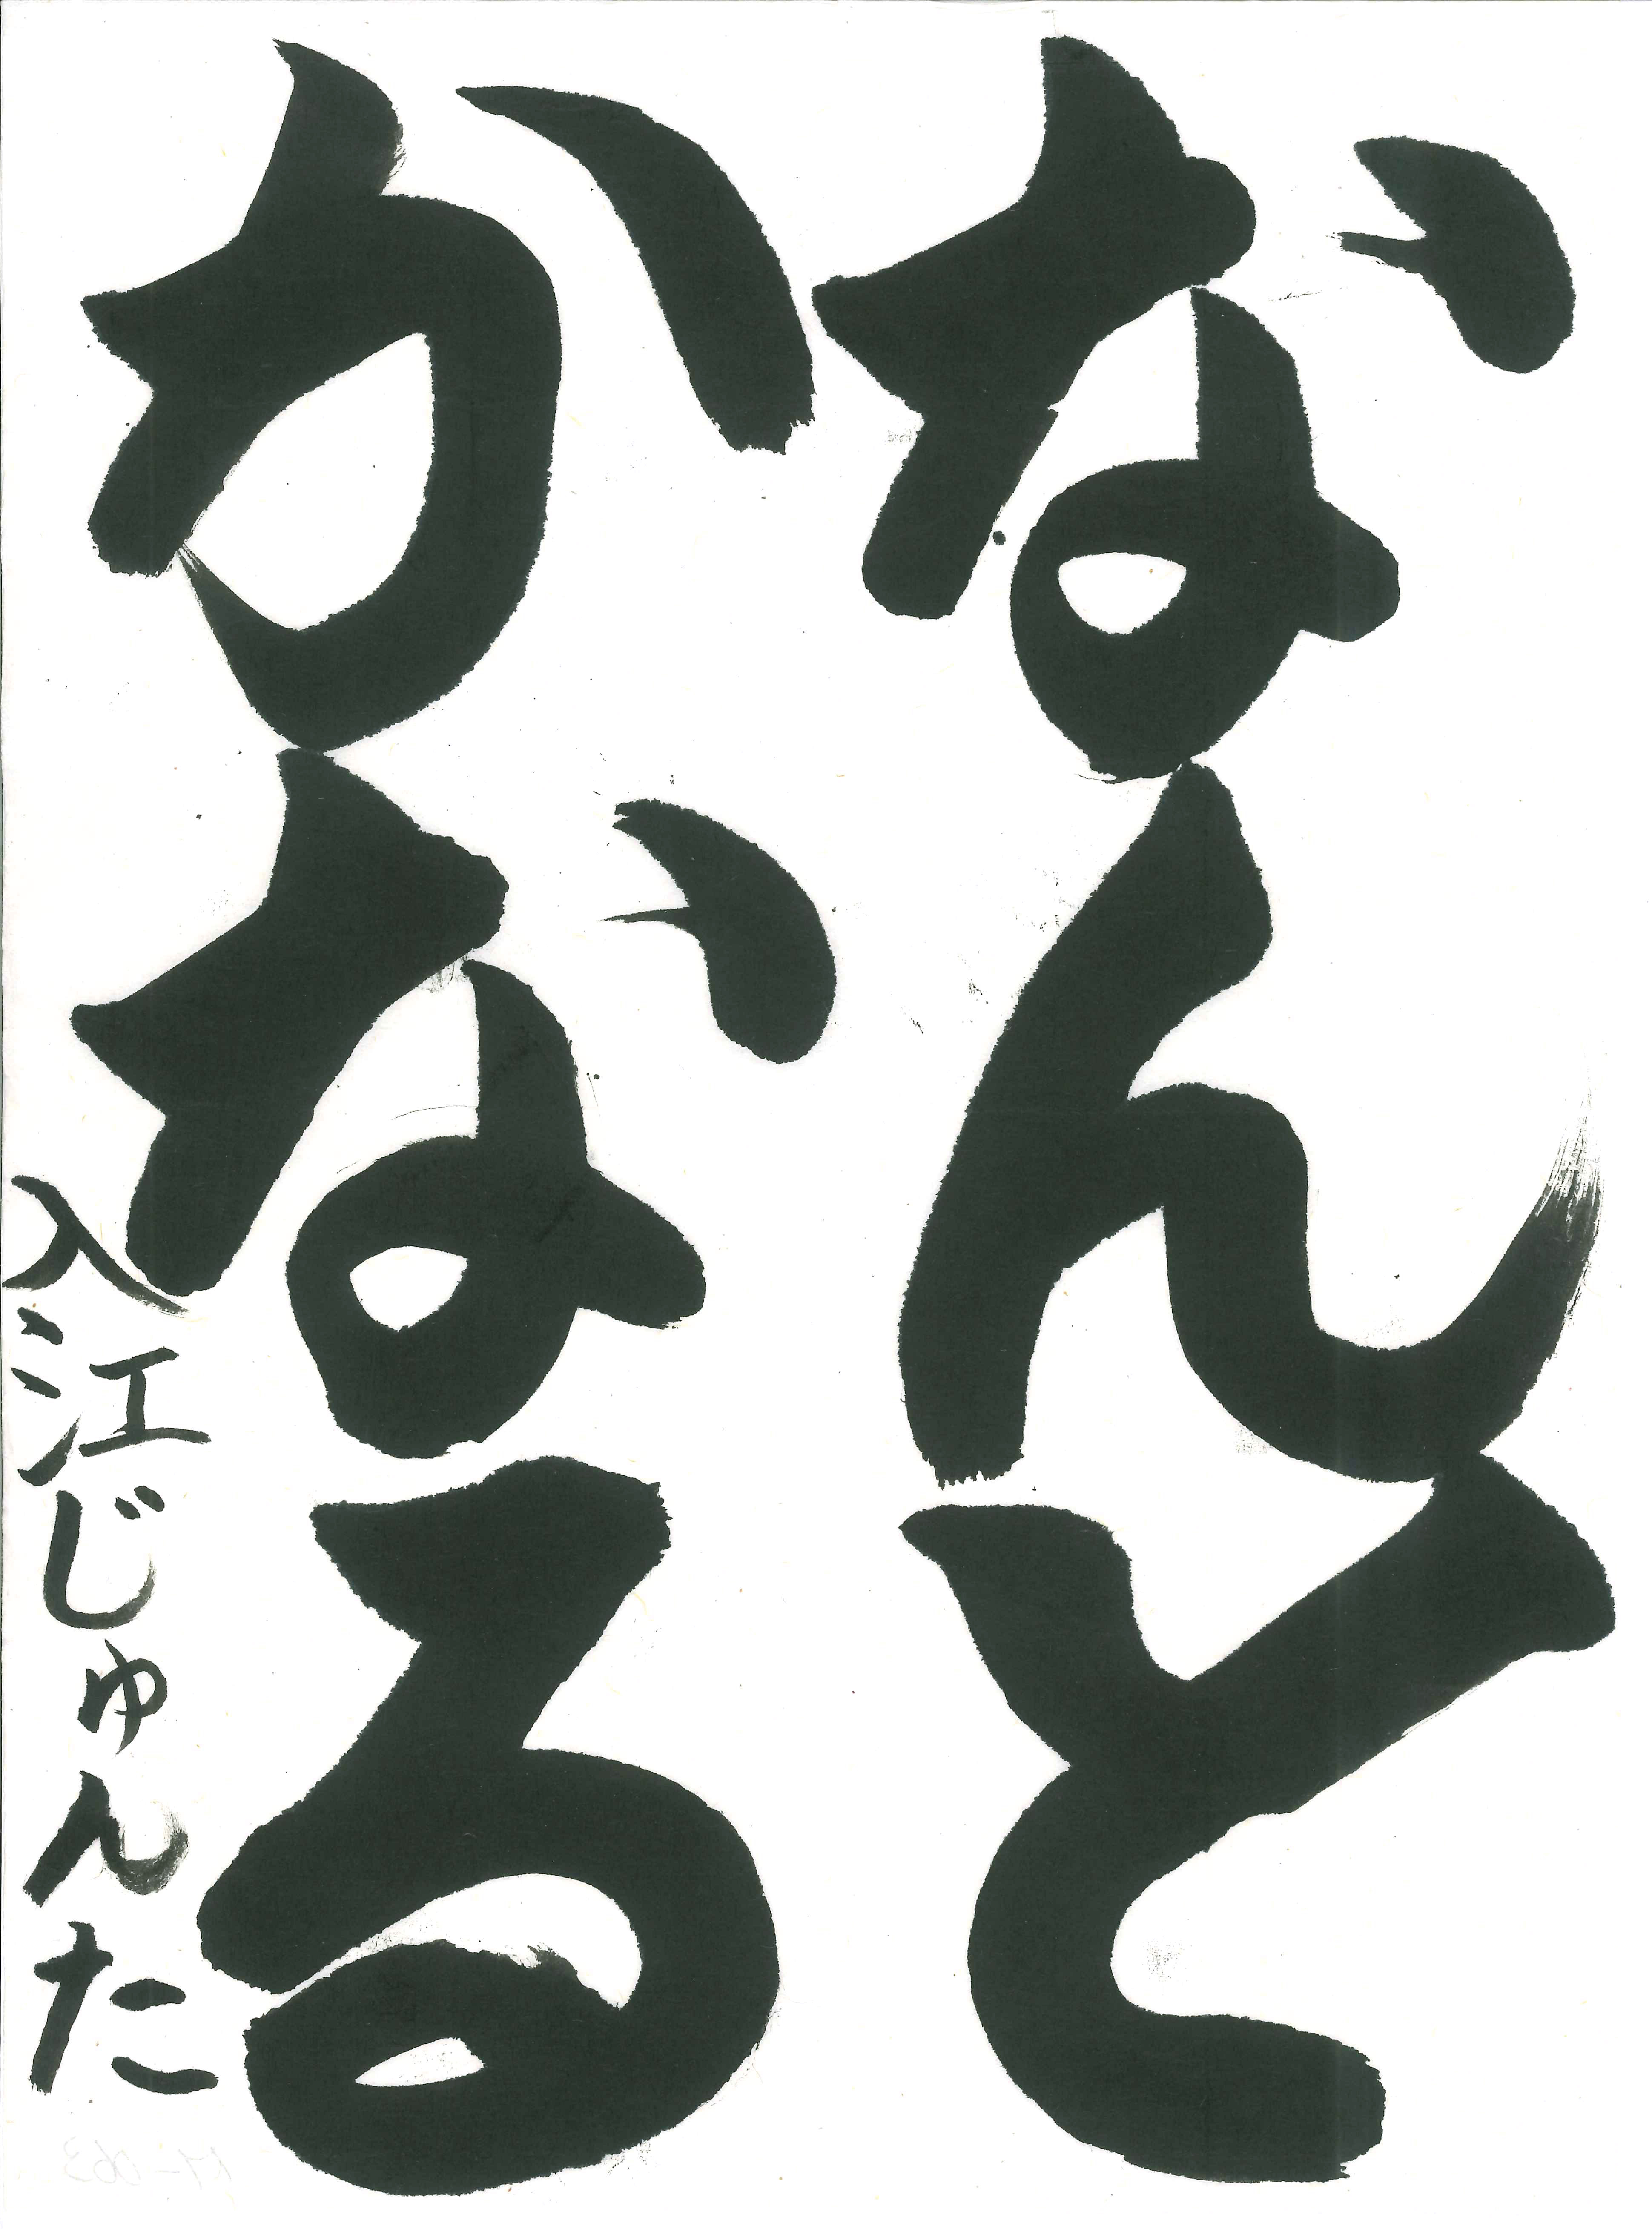 なんと
かなる
入江じゅんた